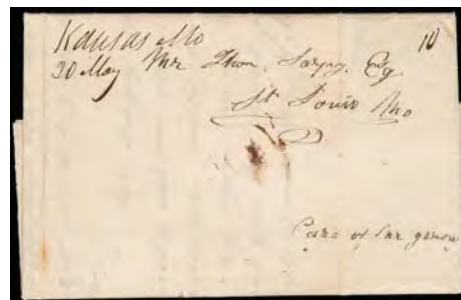 Kansas Mo 10
30 May Mr Thon. Sarpy. Esq
St Louis Mo
Care of